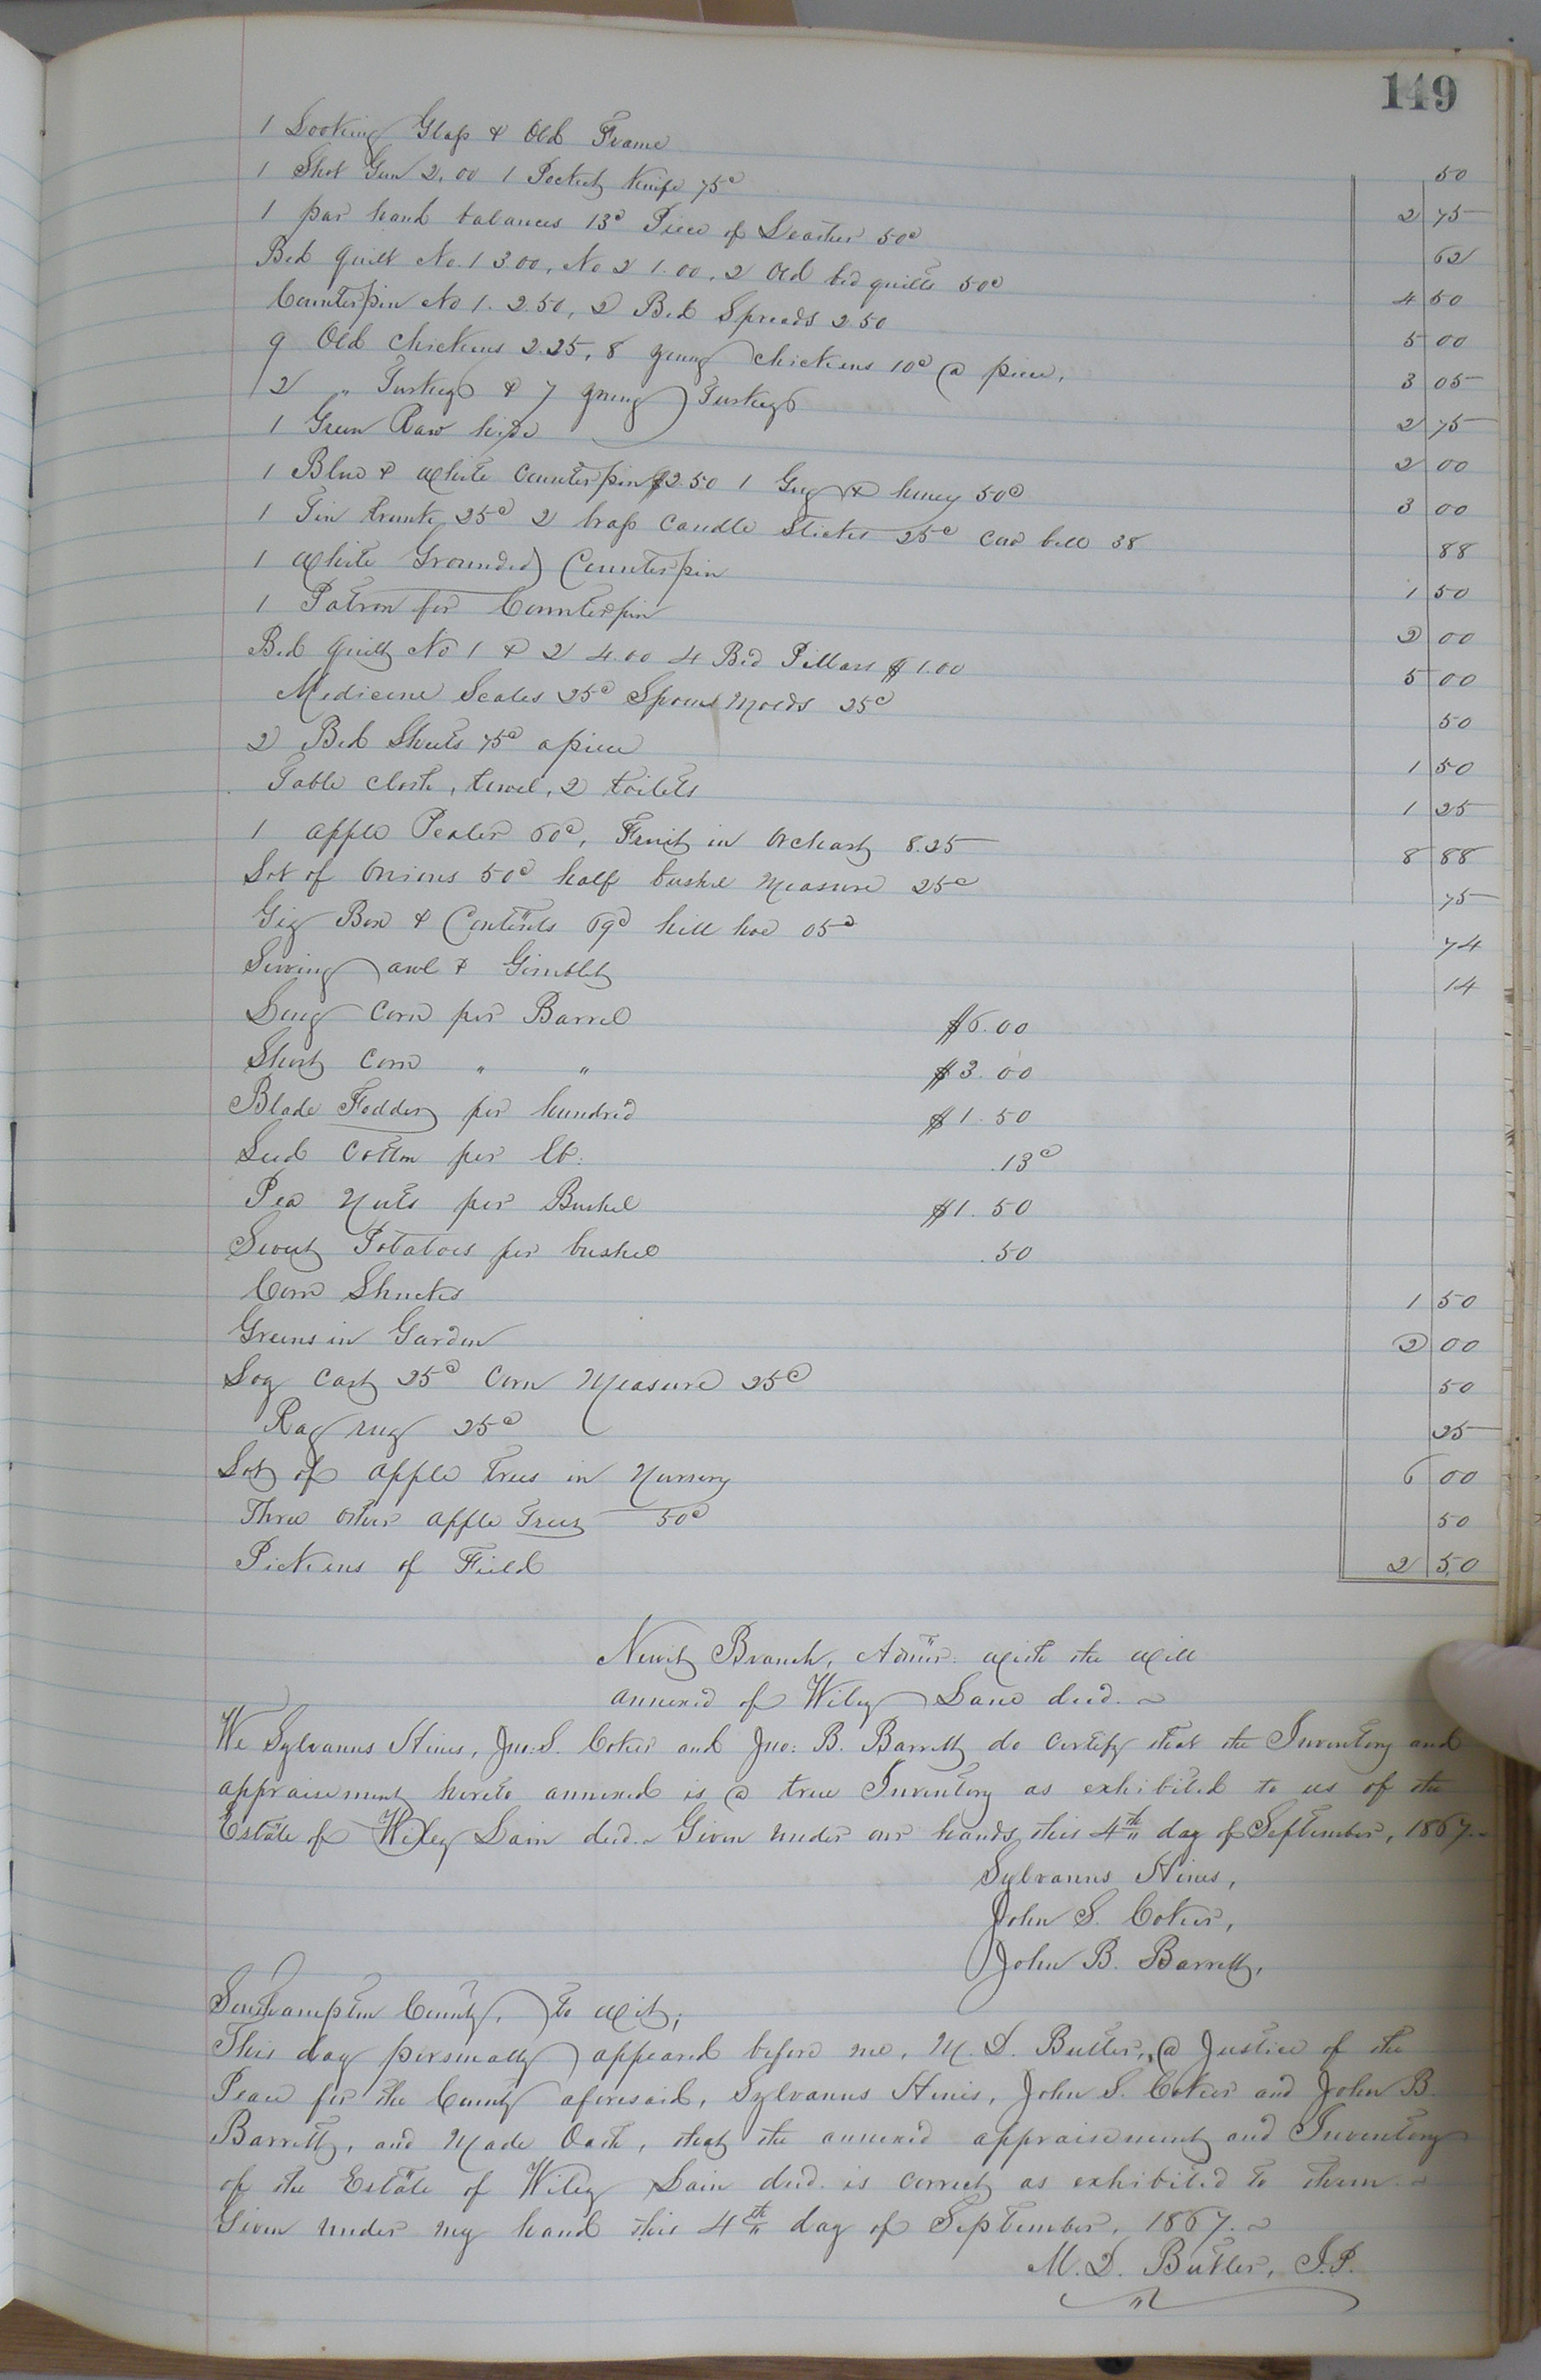 149
1 Looking Glass & Old Frame 50
1 Shot Gun 2.00 1 Pocket Knife 75c 2 75
1 par hand balances 13c Piece of Leather 50c 62
Bed quilt No. 1 3.00, No 2 1.00, 2 Old bed quilts 50c 4 50
Counterpin No 1. 2.50, 2 Bed Spreads 2.50 5 00
9 Old Chickens 2.25, 8 young chickens 10c a piece, 3 05
2 " Turkeys & 7 young Turkeys 2 75
1 Green Raw hide 2 00
1 Blue & White Counterpin $2.50 1 Gug & honey 50c 3 00
1 Tin trunk 25c 2 brass Candle Sticks 25c Cow bell 38 88
1 White Grounded Counterpin 1 50
1 Patron for Counterpin 2 00
Bed quilt No 1 & 2 4.00 4 Bed Pillars $1.00 5 00
Medicine Scales 25c Spoon Molds 25c 50
2 Bed Sheets 75c apiece 1 50
Table cloth, towel, 2 toilets 1 25
1 apple Pealer 60c, Fruit in Orchart 8.25 8 88
Lot of Onions 50c half bushel Measure 25c 75
Gig Box & Contents 69c hill hoe 05c 74
Sewing awl & Gimblet 14
Long Corn per Barrel $6.00
Short Corn " " $3.00
Blade Fodder per hundred $1.50
Seed Cotton per lb. .13c
Pea Nuts per Bushel $1.50
Sweet Potatoes per bushel .50
Corn Shucks 1 50
Greens in Garden 2 00
Log Cart 25c Corn Measure 25c 50
Rag rug 25c 25
Lot of apple trees in Nursery 6 00
Three other apple Trees 50c 50
Pickens of Field 2 50
Newit Branch, Admr. with the Will
annexed of Wiley Lane decd.
We Sylvanus Hines, Jno. S. Coker and Jno: B. Barrett do Certify that the Inventory and
appraisement hereto annexed is a true Inventory as exhibited to us of the
Estate of Wiley Lain decd. Given under our hands this 4th day of September, 1867.
Sylvanus Hines,
John S. Coker,
John B. Barrett,
Southampton County, to Wit;
This day personally appeared before me, M. D. Butler, a Justice of the
Peace for the County aforesaid, Sylvanus Hines, John S. Coker and John B.
Barrett, and Made Oath, that the annexed appraisement and Inventory
of the Estate of Wiley Lain decd. is correct as exhibited to them.
Given under my hand this 4th day of September, 1867.
M. D. Butler, J.P.